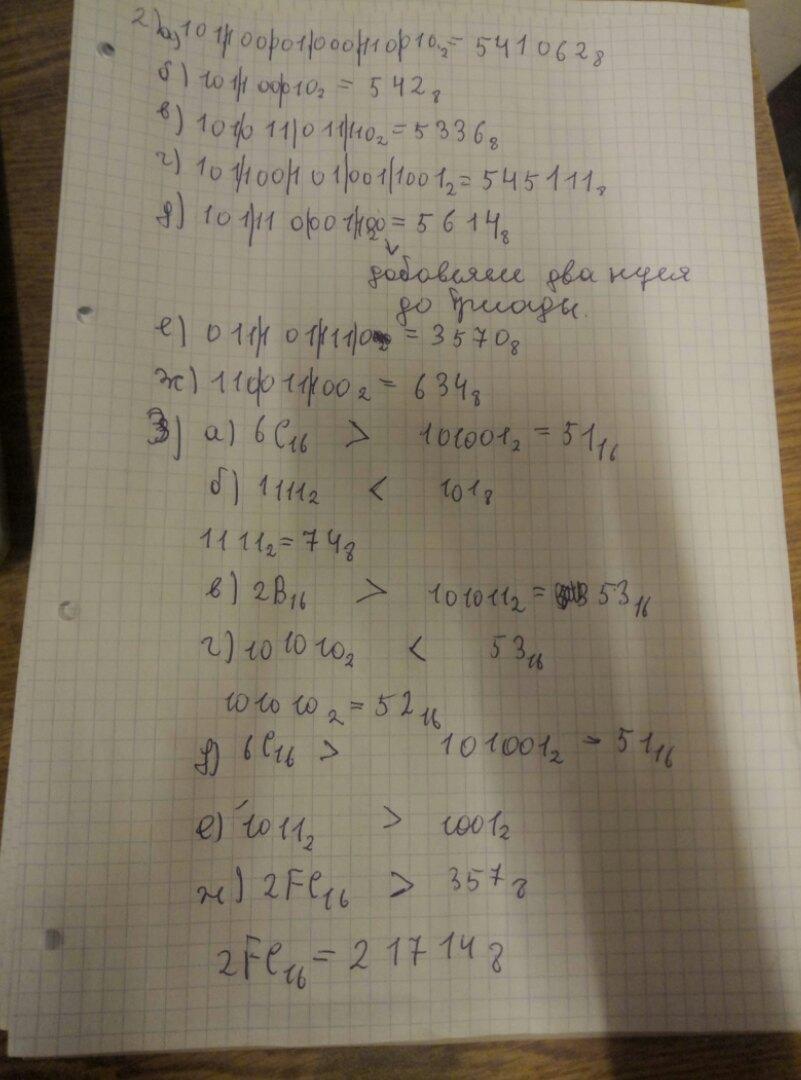 2) а) 101|100|001|000|110|010₂ = 541062₈
б) 101|100|010₂ = 542₈
в) 101|011|011|110₂ = 5336₈
г) 101|100|101|001|1001₂ = 545111₈
д) 101|110001|100 = 5614₈
добовляем два нуля
до триады.
е) 011|101|111|0 = 3570₈
ж) 110|011|100₂ = 634₈
3) а) 6C₁₆ > 101001₂ = 51₁₆
б) 1111₂ < 101₈
1111₂ = 74₈
в) 2B₁₆ > 101011₂ = 53₁₆
г) 101010₂ < 53₁₆
101010₂ = 52₁₆
д) 6C₁₆ > 101001₂ = 51₁₆
е) 1011₂ > 1001₂
ж) 2FC₁₆ > 357₈
2FC₁₆ = 21714₈